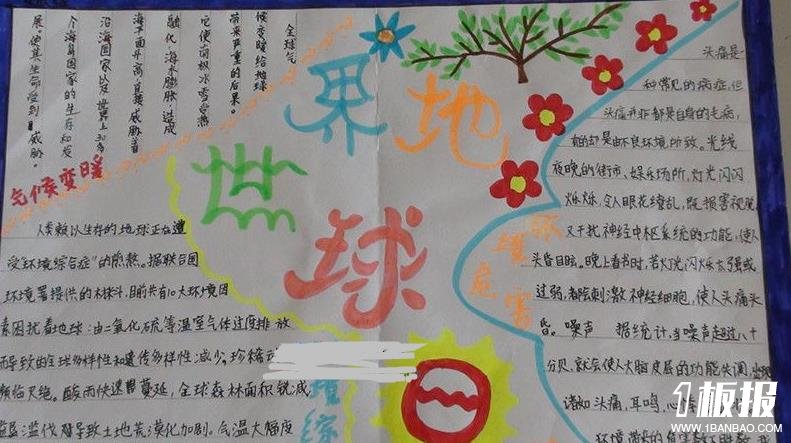 全球气
候变暖给地球
带来严重的后果。
它使南极冰雪受热
融化,海水膨胀,造成
海平面升高直接威胁着
沿海国家以及世界上30多
个海岛国家的生存和发
展,使其生命受到威胁。
气候变暖
世界地
球
人类赖以生存的地球正在遭
受"环境综合症"的煎熬。据联合国
环境署提供的材料,目前共有10大环境因
素困扰着地球:由二氧化硫等温室气体过度排放
而导致的全球多样性和遗传多样性减少,珍稀
濒临灭绝。酸雨快速蔓延,全球森林面积锐减
滥伐导致土地荒漠化加剧。气温大幅度
境综
头痛是一
种常见的病症,但
头痛并非都是自身的毛病,
有的却是由不良环境所致。光线
夜晚的街市、娱乐场所,灯光闪闪
烁烁,令人眼花缭乱,既损害视觉
又干扰神经中枢系统的功能,使人
头昏目眩。晚上看书时,若灯光闪烁太强或
过弱,都会刺激神经细胞,使人头痛头
昏。噪声 据统计,当噪声超过八十
分贝,就会使人大脑皮层的功能失调,出现
诸如头痛,耳鸣,心
环境
环境危害
1板报
WWW.1BANBAO.COM